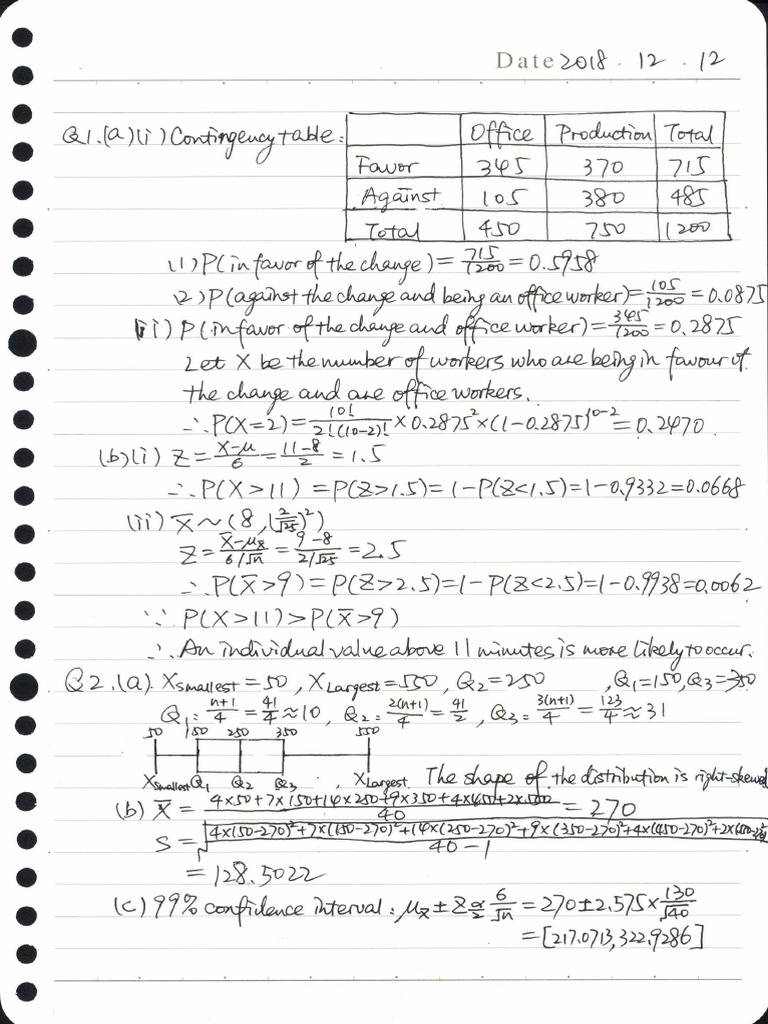 Date 2018. 12. 12
Q1.(a)(i) Contingency table:
Office Production Total
Favor 345 370 715
Against 105 380 485
Total 450 750 1200
(1) P(in favor of the change) = 715/1200 = 0.5958
2) P(against the change and being an office worker) = 105/1200 = 0.0875
(ii) P(in favor of the change and office worker) = 345/1200 = 0.2875
Let X be the number of workers who are being in favour of
the change and are office workers.
∴ P(X=2) = 10!/2!(10-2)! × 0.2875² × (1-0.2875)^10-2 = 0.2470
(b)(i) Z = X-μ/6 = 11-8/2 = 1.5
∴ P(X>11) = P(Z>1.5) = 1-P(Z<1.5) = 1-0.9332 = 0.0668
(ii) X̄ ~ (8, (2/√25)²)
Z = X̄-μx̄/6/√n = 9-8/2/√25 = 2.5
∴ P(X̄>9) = P(Z>2.5) = 1-P(Z<2.5) = 1-0.9938 = 0.0062
∵ P(X>11) > P(X̄>9)
∴ An individual value above 11 minutes is more likely to occur.
Q2.(a). Xsmallest = 50, XLargest = 550, Q2 = 250, Q1 = 150, Q3 = 350
Q1: n+1/4 = 41/4 ≈ 10, Q2: 2(n+1)/4 = 41/2, Q3: 3(n+1)/4 = 123/4 ≈ 31
50 150 250 350 550
Xsmallest Q1 Q2 Q3, XLargest. The shape of the distribution is right-skewed
(b) X̄ = 4×50+7×150+14×250+9×350+4×450+2×550/40 = 270
S = √4×(50-270)²+7×(150-270)²+14×(250-270)²+9×(350-270)²+4×(450-270)²+2×(550-270)²/40-1
= 128.5022
(c) 99% confidence interval: μx̄ ± Zα/2 6/√n = 270 ± 2.575 × 130/√40
= [217.0713, 322.9286]